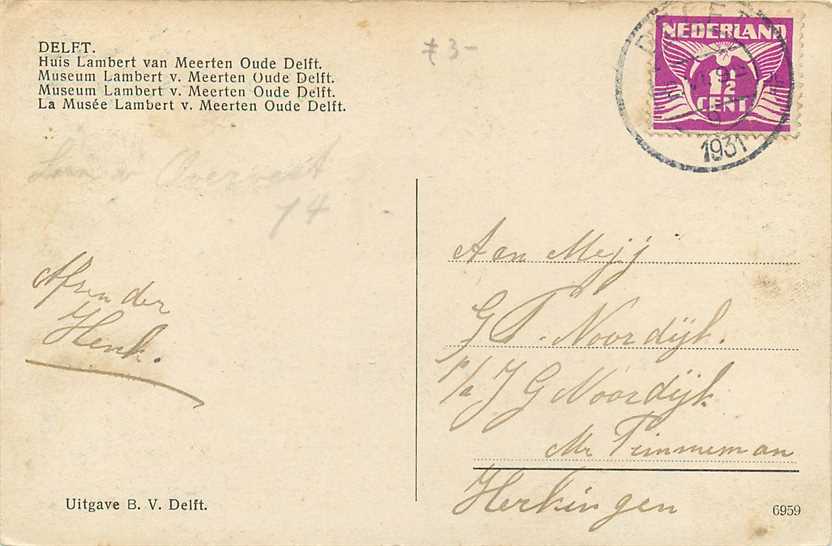 DELFT.
Huis Lambert van Meerten Oude Delft.
Museum Lambert v. Meerten Oude Delft.
Museum Lambert v. Meerten Oude Delft.
La Musée Lambert v. Meerten Oude Delft.
3-
NEDERLAND
1½
CENT
DELFT
1931
14
Afzender
Henk.
Aan Mejj
G T. Noordijk.
p/a J G Noordijk
Mr Timmerman
Herkingen
Uitgave B. V. Delft.
6959